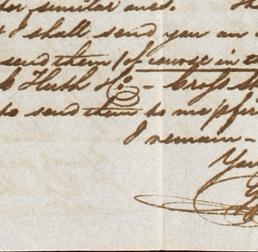 similar ones.
I shall send you an
send them (of course in t
Hush No. - Cross
to send them to me
I remain -
You